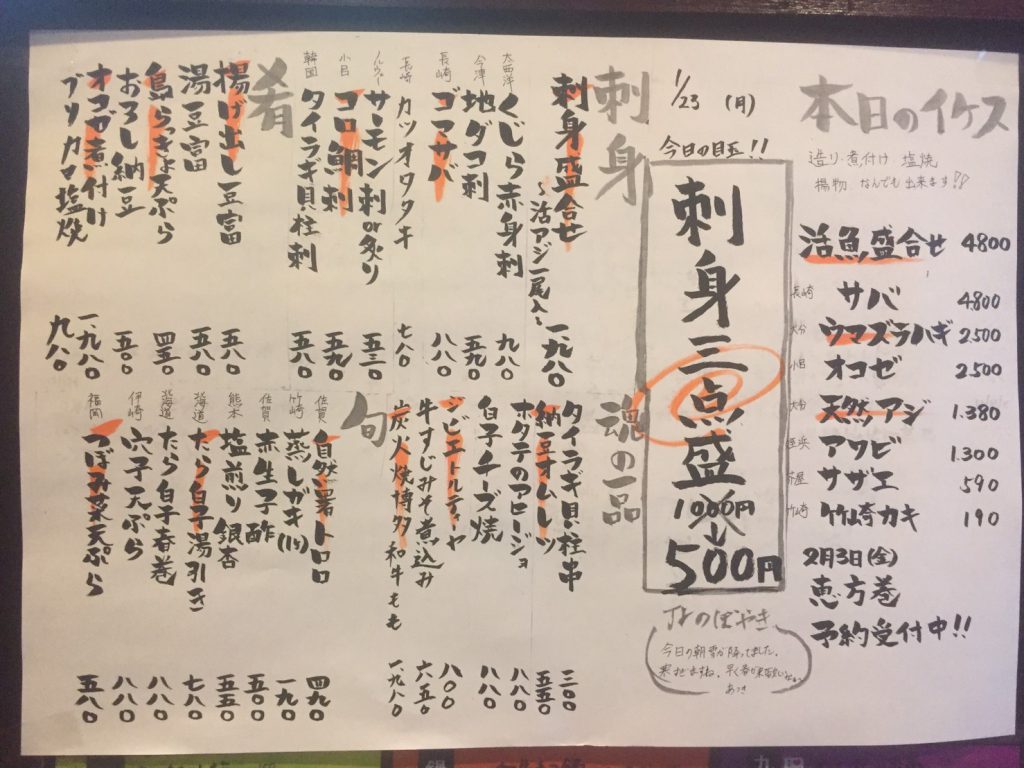 本日のイケス
造り、煮付け 塩焼
揚物、なんでも出来ます!!
活魚盛合せ 4800
長崎 サバ 4800
大分 ウマズラハギ 2500
小呂 オコゼ 2500
大分 天然アジ 1.380
姪浜 アワビ 1.300
芦屋 サザエ 590
竹崎 竹崎カキ 190
2月3日(金)
恵方巻
予約受付中!!
1/23 (月)
今日の目玉!!
刺身三点盛
1000円
↓
500円
Jrのぼやき
今日の朝雪が降ってました。
あつき
刺身
刺身盛合せ ~活アジ一尾入~ 一、九八〇
大西洋 くじら赤身刺 九八〇
今津 地ダコ刺 五九〇
長崎 ゴマサバ 八八〇
長崎 カツオタタキ 七八〇
ノルウェー サーモン刺or炙り 五三〇
小呂 コロ鯛刺 五九〇
韓国 タイラギ貝柱刺 五八〇
肴
揚げ出し豆富 五八〇
湯豆富 五八〇
島らっきょ天ぷら 四五〇
おろし納豆 五〇〇
オコゼ煮付け 一、九八〇
ブリカマ塩焼 九八〇
魂の一品
タイラギ貝柱串 三〇〇
納豆オムレツ 五五〇
ホタテのアヒージョ 八八〇
白子チーズ焼 八八〇
ジビエトルティーヤ 八〇〇
牛すじみそ煮込み 六五〇
炭火焼博多和牛もも 一、九八〇
旬
佐賀 自然薯トロロ 四九〇
竹崎 蒸しガキ(1ケ) 一九〇
佐賀 赤生子酢 五〇〇
熊本 塩煎り銀杏 五五〇
北海道 たら白子湯引き 七八〇
北海道 たら白子春巻 八八〇
伊崎 穴子天ぷら 八八〇
福岡 つぼみ菜天ぷら 五八〇